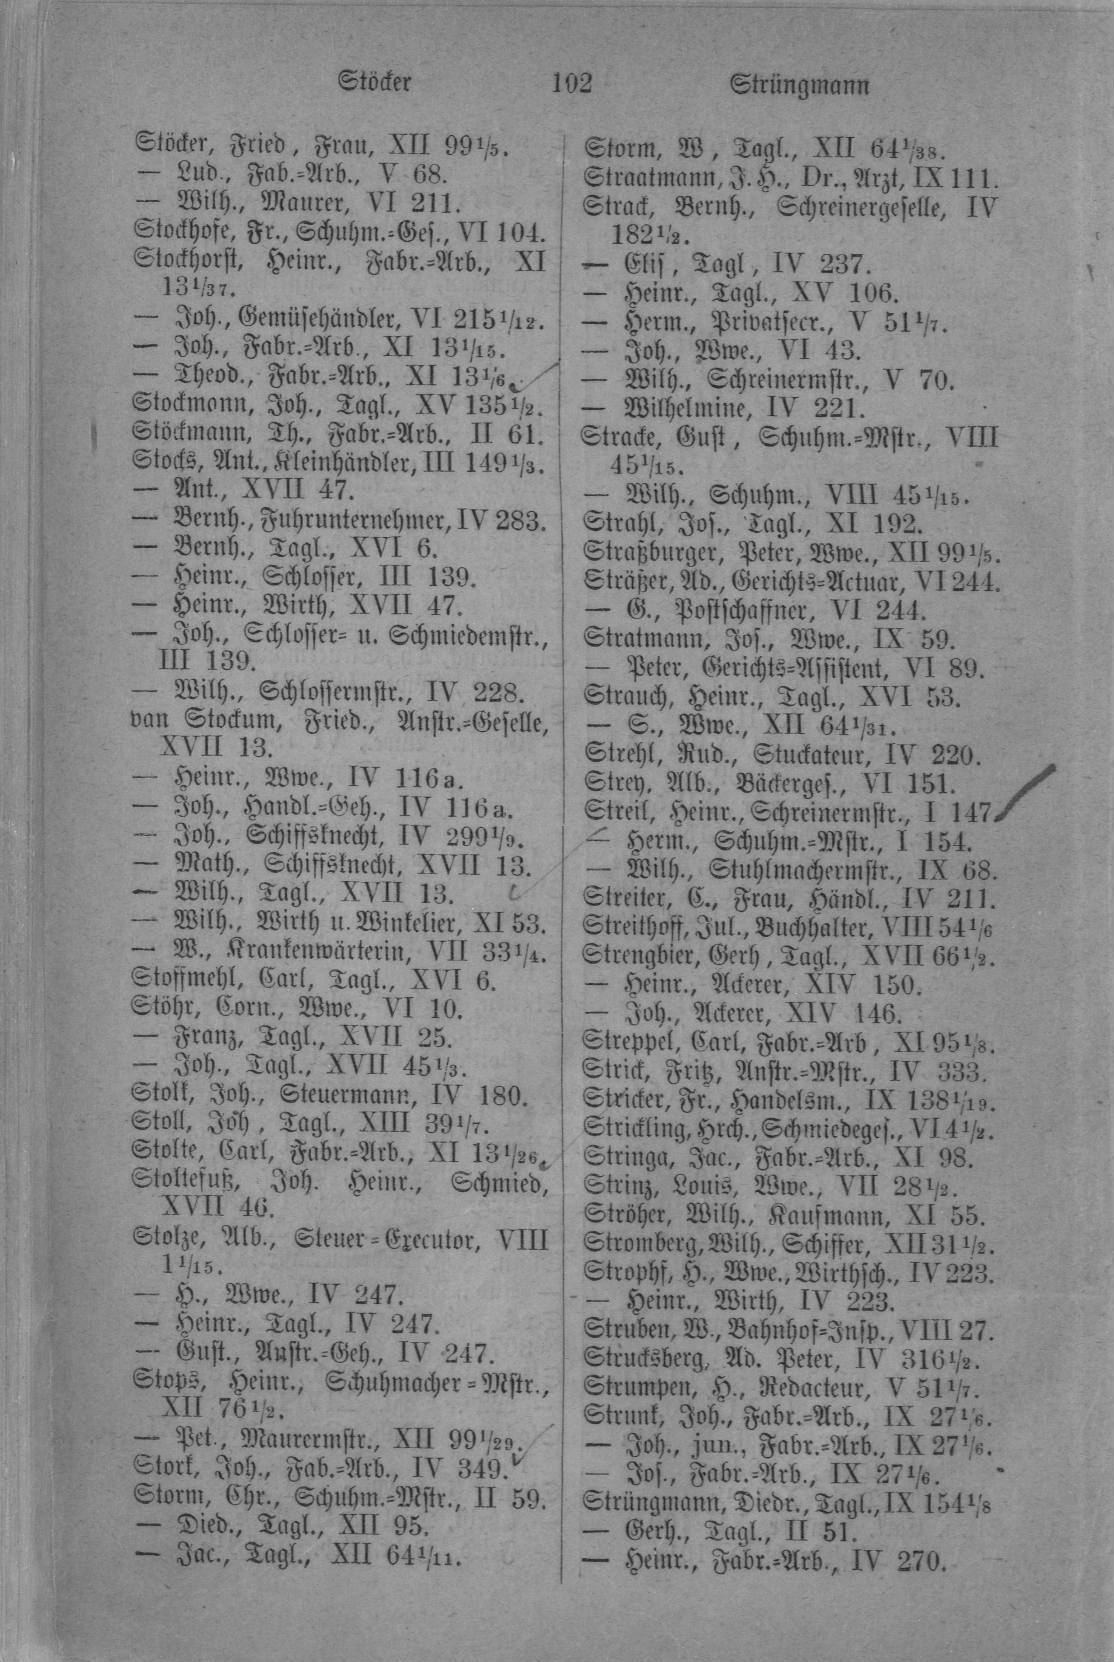 Stöcker 102 Strüngmann
Stöcker, Fried, Frau, XII 99 1/5.
— Lud., Fab.=Arb., V 68.
— Wilh., Maurer, VI 211.
Stockhofe, Fr., Schuhm.=Ges., VI 104.
Stockhorst, Heinr., Fabr.=Arb., XI
13 1/37.
— Joh., Gemüsehändler, VI 215 1/12.
— Joh., Fabr.=Arb., XI 13 1/15.
— Theod., Fabr.=Arb., XI 13 1/6.
Stockmann, Joh., Tagl., XV 135 1/2.
Stöckmann, Th., Fabr.=Arb., II 61.
Stocks, Ant., Kleinhändler, III 149 1/3.
— Ant., XVII 47.
— Bernh., Fuhrunternehmer, IV 283.
— Bernh., Tagl., XVI 6.
— Heinr., Schlosser, III 139.
— Heinr., Wirth, XVII 47.
— Joh., Schlosser= u. Schmiedemstr.,
III 139.
— Wilh., Schlossermstr., IV 228.
van Stockum, Fried., Anstr.=Geselle,
XVII 13.
— Heinr., Wwe., IV 116a.
— Joh., Handl.=Geh., IV 116a.
— Joh., Schiffsknecht, IV 299 1/9.
— Math., Schiffsknecht, XVII 13.
— Wilh., Tagl., XVII 13.
— Wilh., Wirth u. Winkelier, XI 53.
— W., Krankenwärterin, VII 33 1/4.
Stoffmehl, Carl, Tagl., XVI 6.
Stöhr, Corn., Wwe., VI 10.
— Franz, Tagl., XVII 25.
— Joh., Tagl., XVII 45 1/3.
Stolk, Joh., Steuermann, IV 180.
Stoll, Joh, Tagl., XIII 39 1/7.
Stolte, Carl, Fabr.=Arb., XI 13 1/26.
Stoltefuß, Joh. Heinr., Schmied,
XVII 46.
Stolze, Alb., Steuer=Executor, VIII
1 1/15.
— H., Wwe., IV 247.
— Heinr., Tagl., IV 247.
— Gust., Anstr.=Geh., IV 247.
Stops, Heinr., Schuhmacher=Mstr.,
XII 76 1/2.
— Pet., Maurermstr., XII 99 1/29.
Stork, Joh., Fab.=Arb., IV 349.
Storm, Chr., Schuhm.=Mstr., II 59.
— Died., Tagl., XII 95.
— Jac., Tagl., XII 64 1/11.
Storm, W, Tagl., XII 64 1/38.
Straatmann, J. H., Dr., Arzt, IX 111.
Strack, Bernh., Schreinergeselle, IV
182 1/2.
— Elis, Tagl, IV 237.
— Heinr., Tagl., XV 106.
— Herm., Privatsecr., V 51 1/7.
— Joh., Wwe., VI 43.
— Wilh., Schreinermstr., V 70.
— Wilhelmine, IV 221.
Stracke, Gust, Schuhm.=Mstr., VIII
45 1/15.
— Wilh., Schuhm., VIII 45 1/15.
Strahl, Jos., Tagl., XI 192.
Straßburger, Peter, Wwe., XII 99 1/5.
Sträßer, Ad., Gerichts=Actuar, VI 244.
— G., Postschaffner, VI 244.
Stratmann, Jos., Wwe., IX 59.
— Peter, Gerichts=Assistent, VI 89.
Strauch, Heinr., Tagl., XVI 53.
— S., Wwe., XII 64 1/31.
Strehl, Rud., Stuckateur, IV 220.
Strey, Alb., Bäckerges., VI 151.
Streil, Heinr., Schreinermstr., I 147.
— Herm., Schuhm.=Mstr., I 154.
— Wilh., Stuhlmachermstr., IX 68.
Streiter, C., Frau, Händl., IV 211.
Streithoff, Jul., Buchhalter, VIII 54 1/6
Strengbier, Gerh, Tagl., XVII 66 1/2.
— Heinr., Ackerer, XIV 150.
— Joh., Ackerer, XIV 146.
Streppel, Carl, Fabr.=Arb, XI 95 1/8.
Strick, Fritz, Anstr.=Mstr., IV 333.
Stricker, Fr., Handelsm., IX 138 1/19.
Strickling, Hrch., Schmiedeges., VI 4 1/2.
Stringa, Jac., Fabr.=Arb., XI 98.
Strinz, Louis, Wwe., VII 28 1/2.
Ströher, Wilh., Kaufmann, XI 55.
Stromberg, Wilh., Schiffer, XII 31 1/2.
Strophf, H., Wwe., Wirthsch., IV 223.
— Heinr., Wirth, IV 223.
Struben, W., Bahnhof=Insp., VIII 27.
Strucksberg, Ad. Peter, IV 316 1/2.
Strumpen, H., Redacteur, V 51 1/7.
Strunk, Joh., Fabr.=Arb., IX 27 1/6.
— Joh., jun., Fabr.=Arb., IX 27 1/6.
— Jos., Fabr.=Arb., IX 27 1/6.
Strüngmann, Diedr., Tagl., IX 154 1/8
— Gerh., Tagl., II 51.
— Heinr., Fabr.=Arb., IV 270.